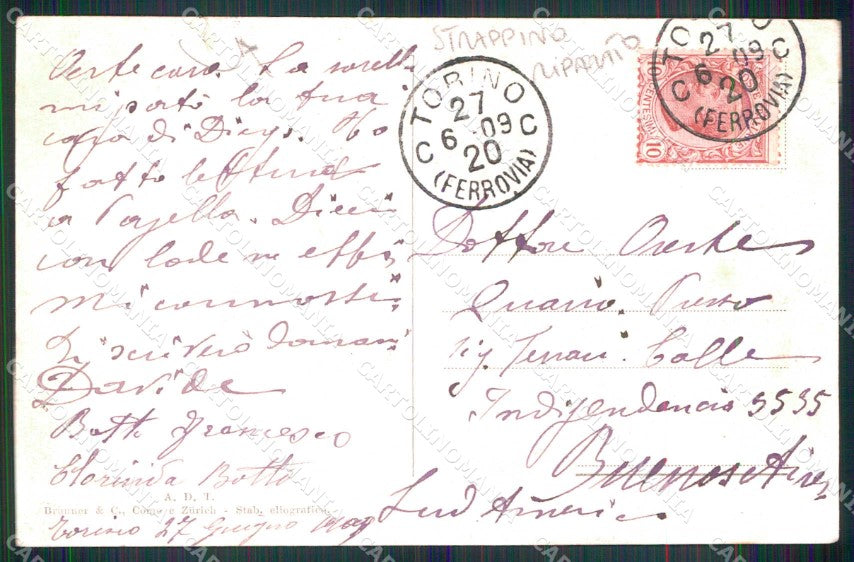 STRAPPINO
RIPARATO
TORINO
27
6 09
C 20 C
(FERROVIA)
TO
27
6 09
C 20 C
(FERROVIA)
10
Oreste caro. La sorella
mi portò la tua
di Diego. Ho
fatto lettura
a Pajella. Dieci
con lode ne ebbi
mi commossi.
Ti scriverò domani
Davide
Botto Francesco
Clorinda Botto
A. D. T.
Brunner & C., Como e Zürich - Stab. eliografico.
Torino 27 Giugno 1909
Dottore Oreste
Presso
Sig. Calle
Independencia 3535
Buenos Aires
Sud America
CARTOLINOMANIA